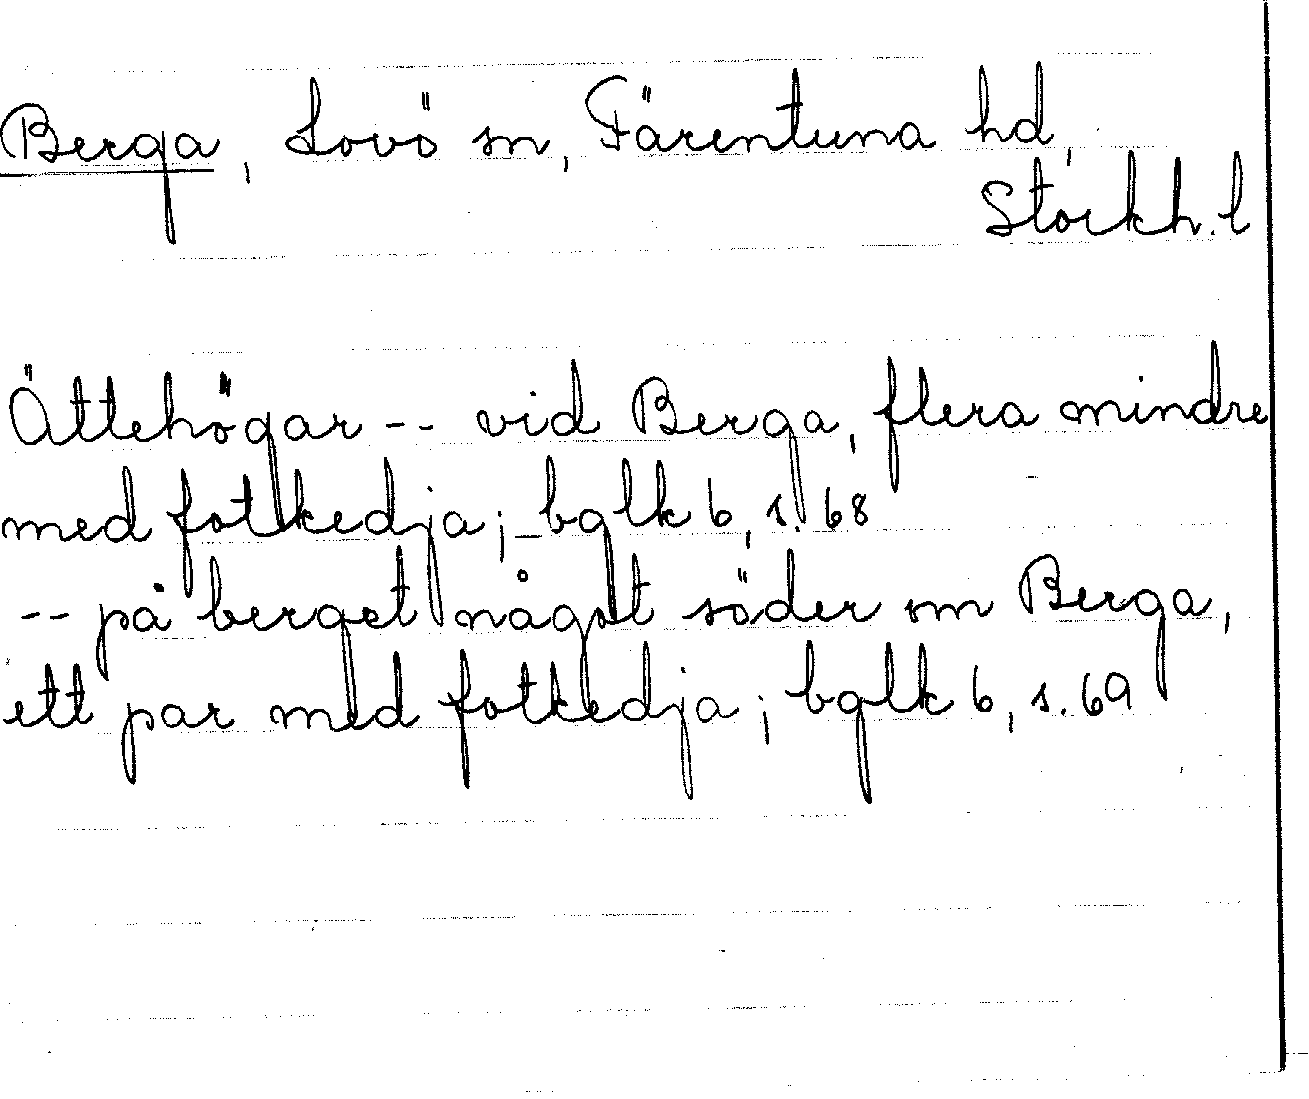 Berga, Lovö sn, Färentuna hd,
Stockh. l
Ättehögar -- vid Berga, flera mindre
med fotkedja; bglk 6, s. 68
-- på berget något söder om Berga,
ett par med fotkedja; bglk 6, s. 69